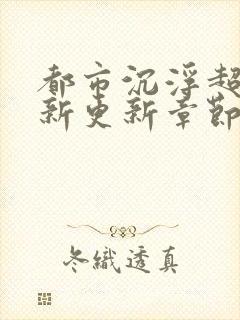 都市沉浮超
新更新章節
冬織透真